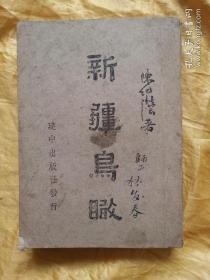 新疆鳥瞰
陳紀瀅著
建中出版社發行